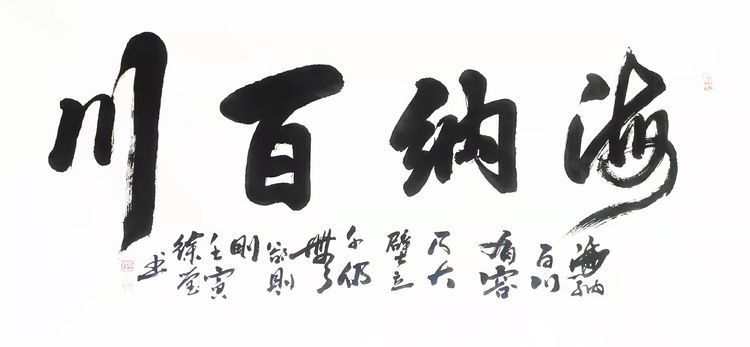 海纳百川
海纳
百川
有容
乃大
壁立
千仞
無
欲則
刚
壬寅
徐
书